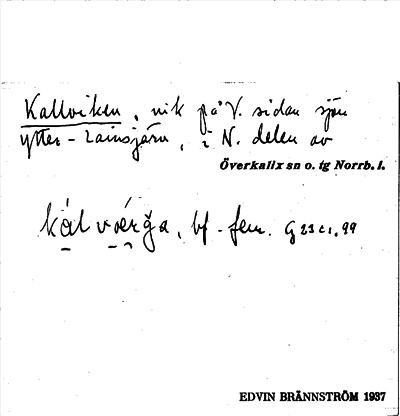 Kallviken, vik på V. sidan sjön
Ytter-Lainsjärv, i N. delen av
Överkalix sn o. tg Norrb. l.
bf. fem.
EDVIN BRÄNNSTRÖM 1937